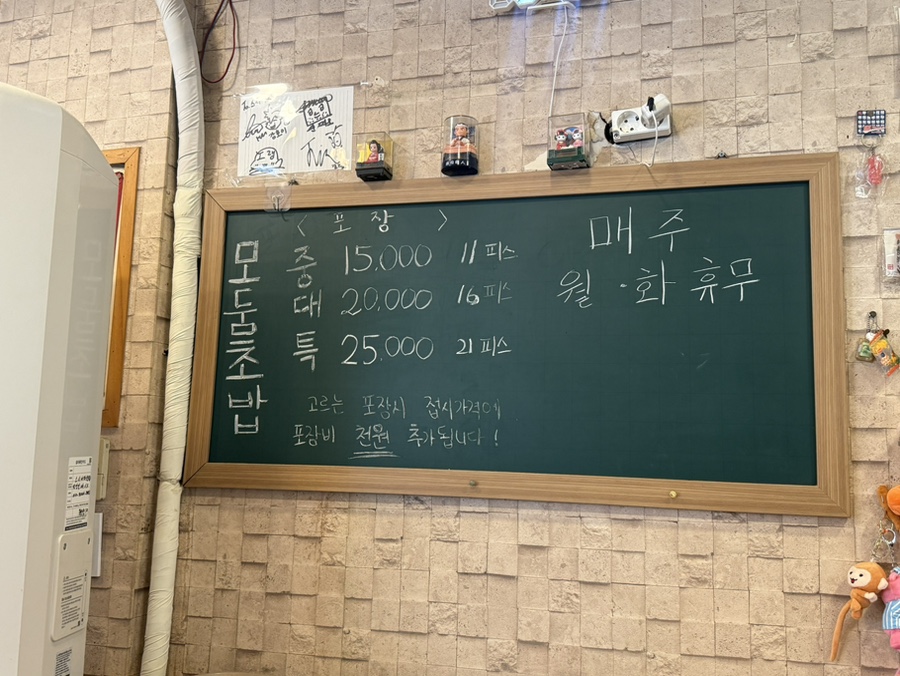 < 포 장 >
모둠초밥
중 15,000 11 피스
대 20,000 16 피스
특 25,000 21 피스
고르는 포장시 접시가격에
포장비 천원 추가됩니다!
매 주
월 · 화 휴무